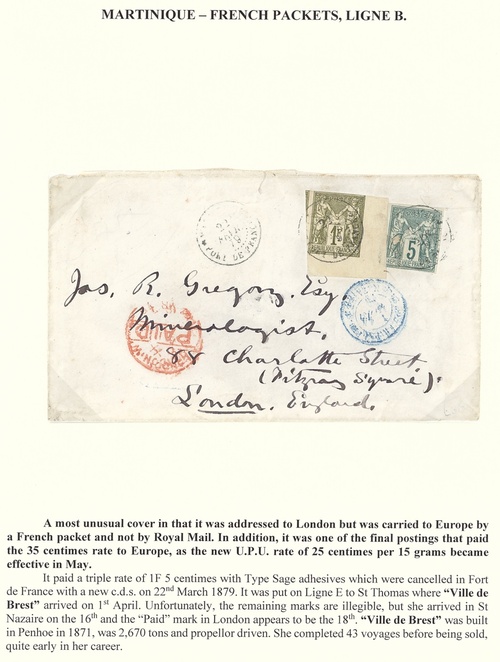 MARTINIQUE – FRENCH PACKETS, LIGNE B.
1F
5
FORT DE FRANCE
Jas. R. Gregory, Esq
Mineralogist,
PAID
88 Charlotte Street,
(Fitzroy Square):
London. England.
A most unusual cover in that it was addressed to London but was carried to Europe by
a French packet and not by Royal Mail. In addition, it was one of the final postings that paid
the 35 centimes rate to Europe, as the new U.P.U. rate of 25 centimes per 15 grams became
effective in May.
It paid a triple rate of 1F 5 centimes with Type Sage adhesives which were cancelled in Fort
de France with a new c.d.s. on 22nd March 1879. It was put on Ligne E to St Thomas where "Ville de
Brest" arrived on 1st April. Unfortunately, the remaining marks are illegible, but she arrived in St
Nazaire on the 16th and the "Paid" mark in London appears to be the 18th. "Ville de Brest" was built
in Penhoe in 1871, was 2,670 tons and propellor driven. She completed 43 voyages before being sold,
quite early in her career.